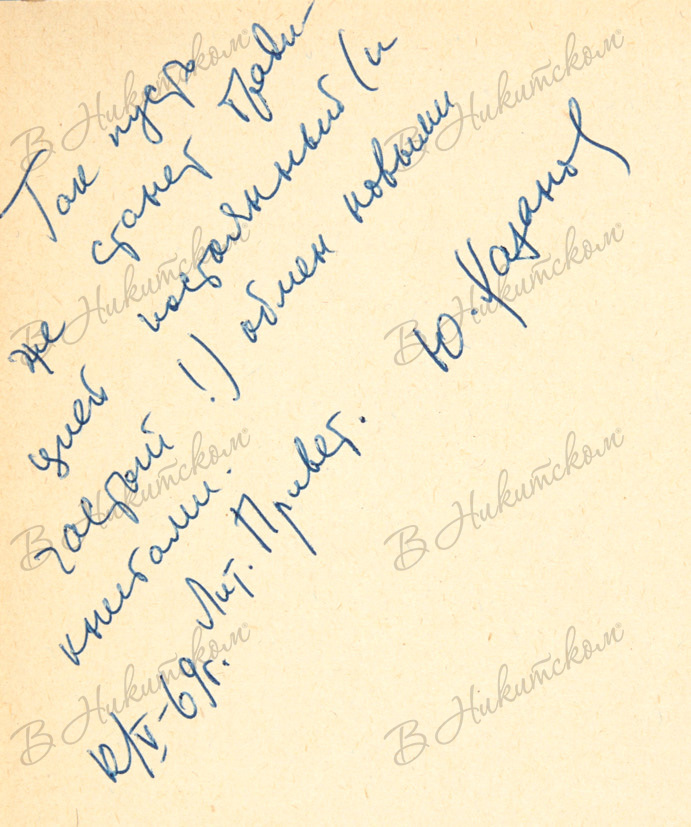 Так пусть
же станет тради-
цией постоянный (и
частый !) обмен новыми
книгами.
Лит. Привет. Ю. Хазанов
12/V-69г.
В Никитском®
В Никитском®
В Никитском®
В Никитском®
В Никитском®
В Никитском®
В Никитском®
В Никитском®